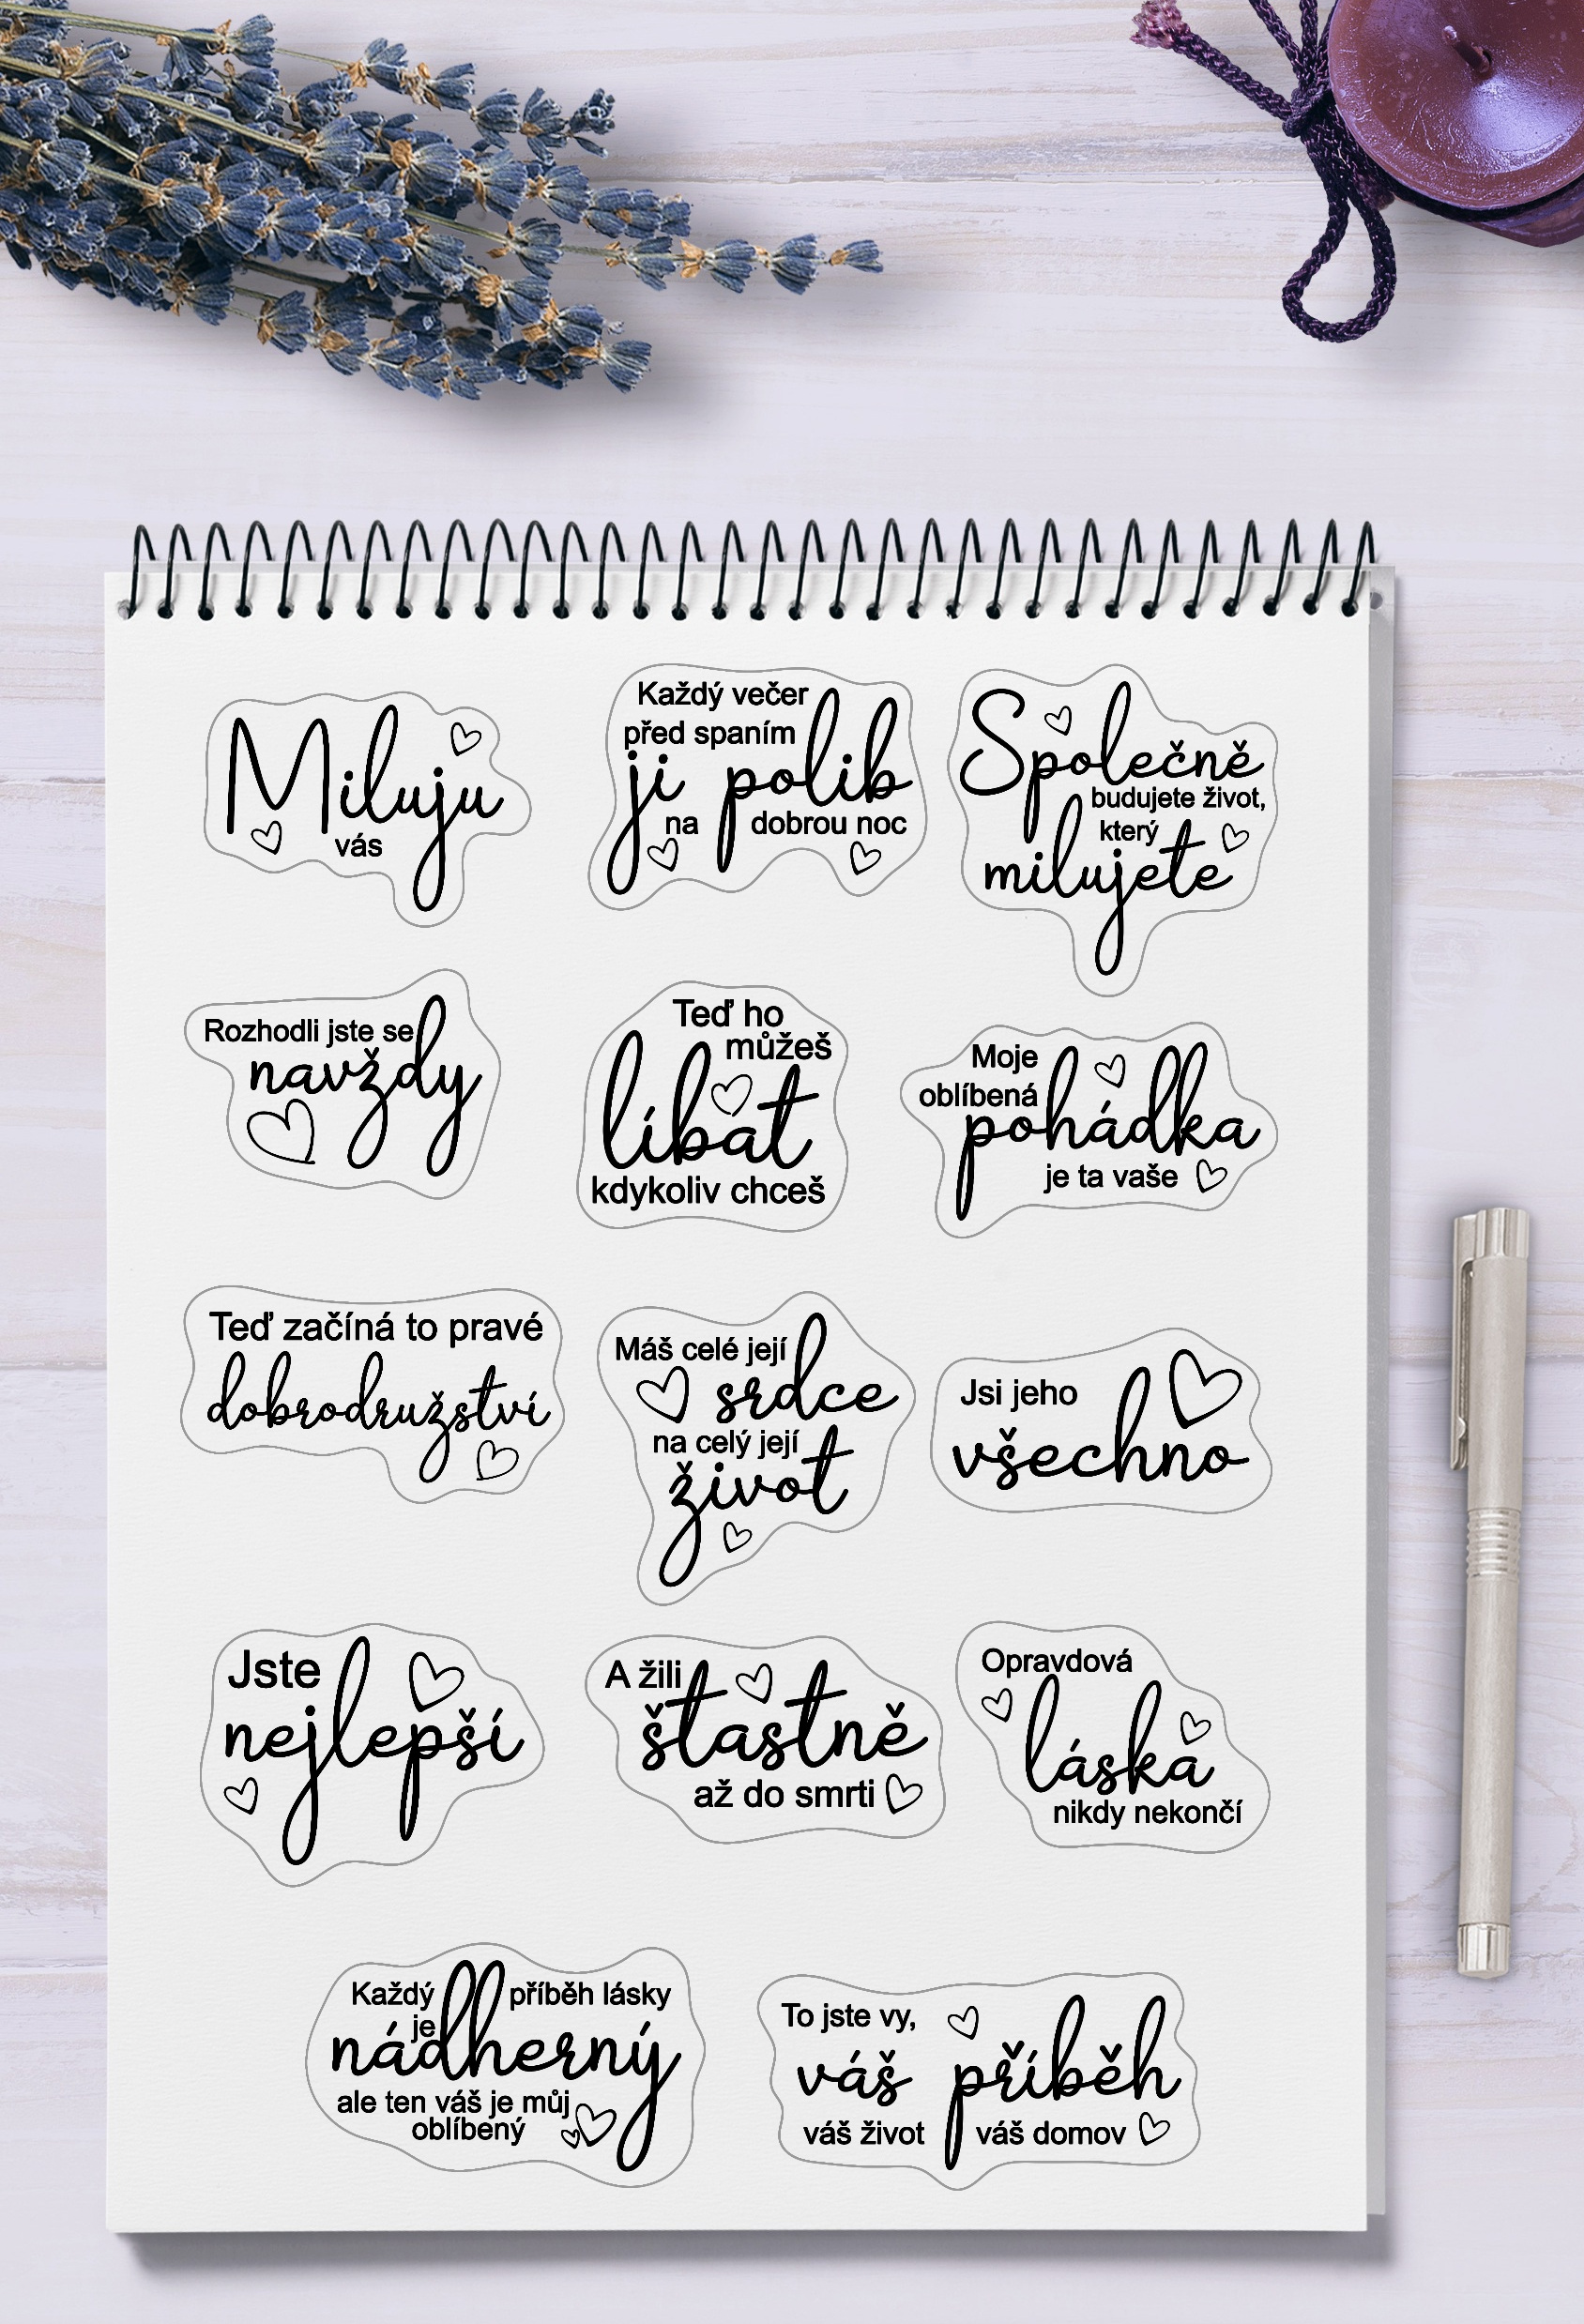 Miluju
vás
Každý večer
před spaním
ji polib
na dobrou noc
Společně
budujete život,
který
milujete
Rozhodli jste se
navždy
Teď ho
můžeš
líbat
kdykoliv chceš
Moje
oblíbená
pohádka
je ta vaše
Teď začíná to pravé
dobrodružství
Máš celé její
srdce
na celý její
život
Jsi jeho
všechno
Jste
nejlepší
A žili
šťastně
až do smrti
Opravdová
láska
nikdy nekončí
Každý příběh lásky
je
nádherný
ale ten váš je můj
oblíbený
To jste vy,
váš příběh
váš život váš domov